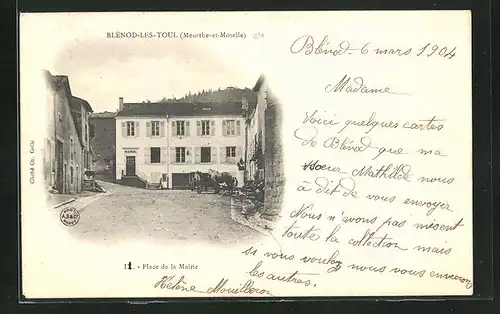 BLÉNOD-LES-TOUL (Meurthe-et-Moselle)
Blénod - 6 mars 1904
Madame
Voici quelques cartes
de Blénod que ma
soeur Mathilde nous
a dit de vous envoyer
Nous n'avons pas mis
toute la collection mais
si vous voulez nous vous enverrons
les autres.
Hélène Mouilleron
Cliché Ch. Colle
MAIRIE
- Place de la Mairie